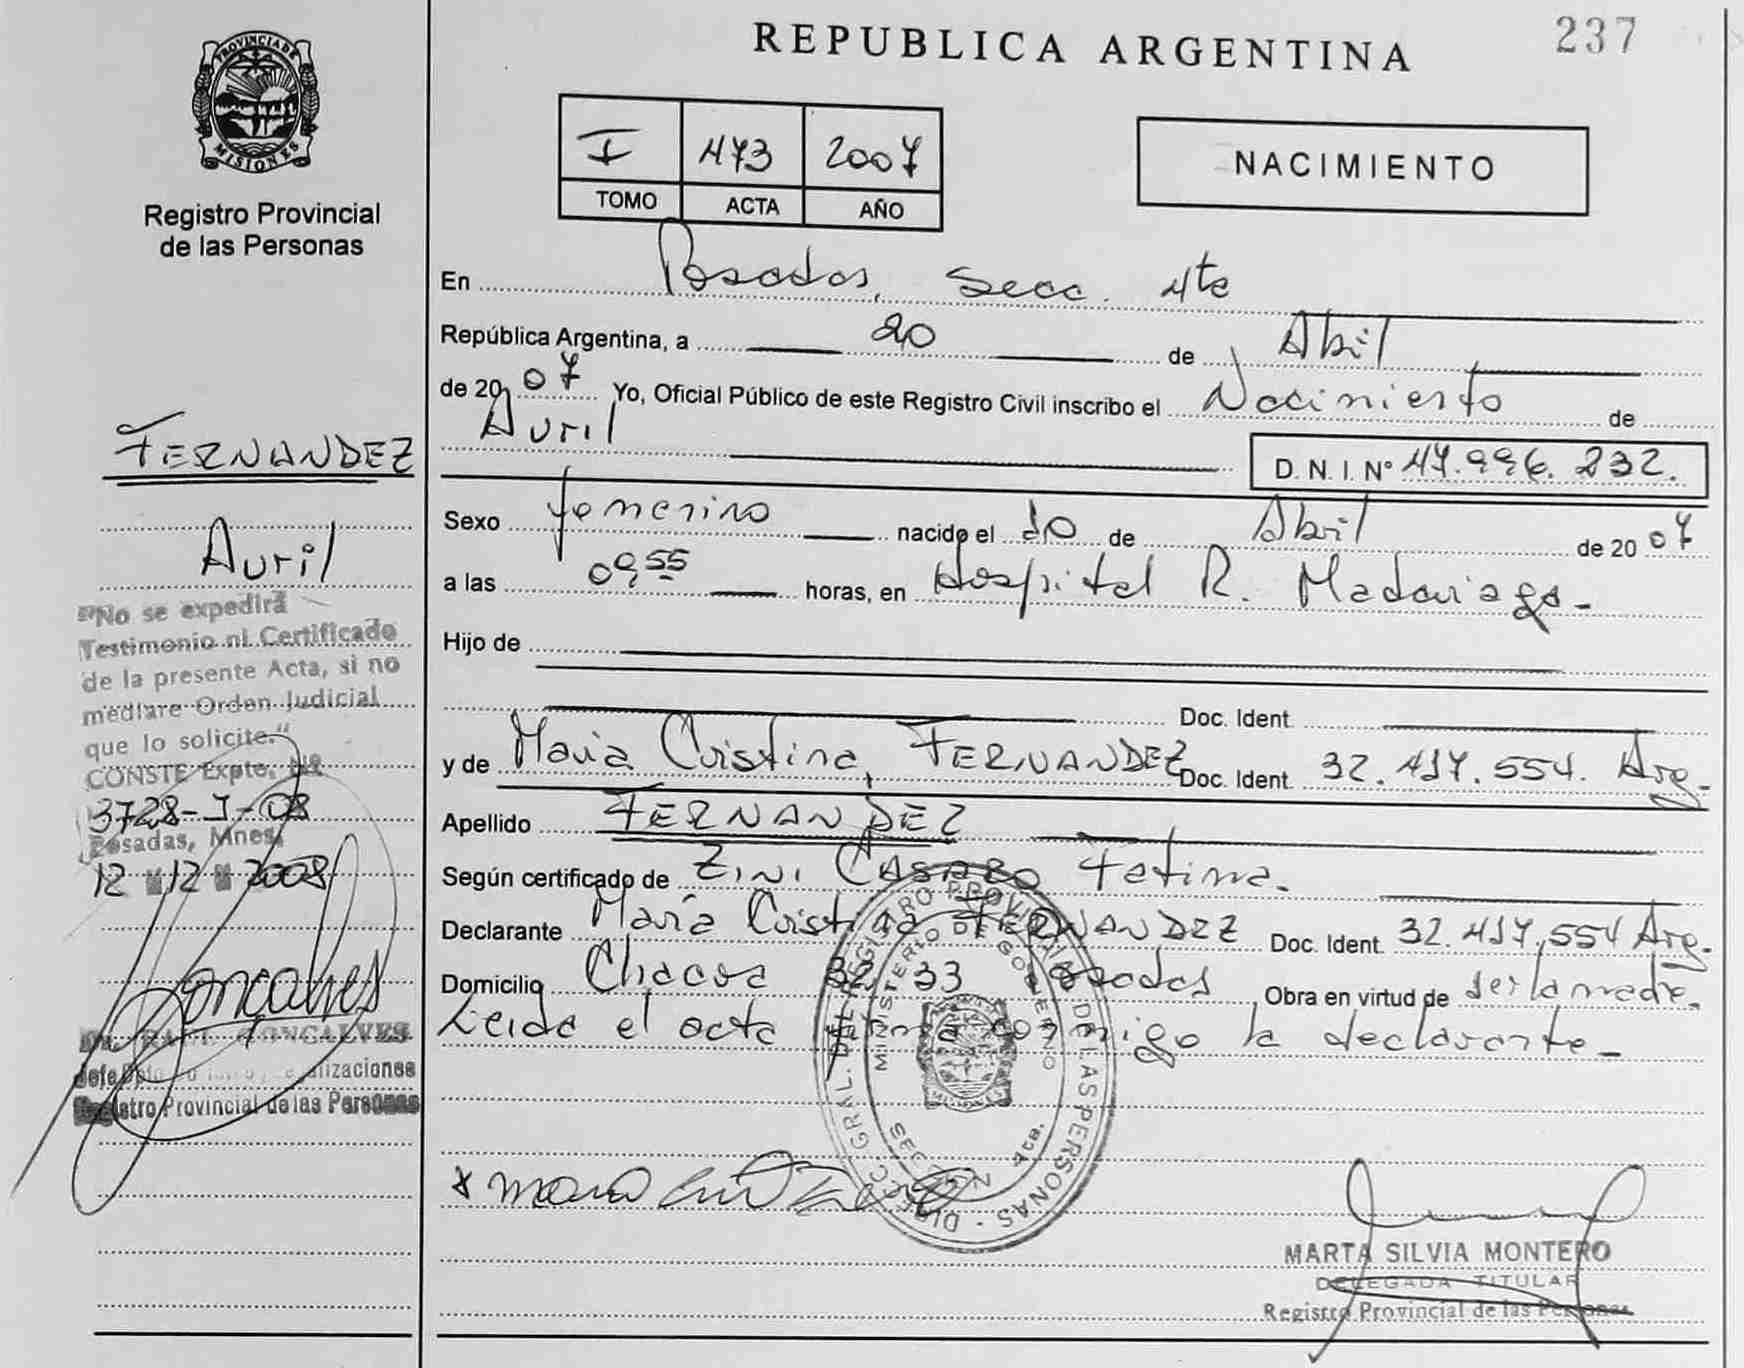 PROVINCIA DE
MISIONES
Registro Provincial
de las Personas
FERNANDEZ
Avril
"No se expedirá
Testimonio ni Certificado
de la presente Acta, si no
mediare Orden Judicial
que lo solicite."
CONSTE Expte. Nº
3728-J-08
Posadas, Mnes,
12 12 2008
Goncalves
Dr. RAUL GONCALVES
Jefe Dpto
Registro Provincial de las Personas
237
REPUBLICA ARGENTINA
I 473 2007
TOMO ACTA AÑO
NACIMIENTO
En Posadas, Secc. 4ta
República Argentina, a 20 de Abril
de 20 07 Yo, Oficial Público de este Registro Civil inscribo el Nacimiento de
Avril
D. N. I. Nº 47.996.232.
Sexo femenino nacido el 10 de Abril de 20 07
a las 09,55 horas, en Hospital R. Madariaga-
Hijo de
Doc. Ident.
y de Maria Cristina, FERNANDEZ Doc. Ident. 32.417.554. Arg.-
Apellido FERNANDEZ
Según certificado de Zini Fatima.
Declarante María Cristina FERNANDEZ Doc. Ident. 32.417.554 Arg.-
Domicilio 32 33 Posadas Obra en virtud de ser la madre.
Leida el acta firma conmigo la declarante-
DIREC. GRAL. DEL REGISTRO PROVINCIAL DE LAS PERSONAS
MINISTERIO DE GOBIERNO
SECCION 4ta.
MARTA SILVIA MONTERO
DELEGADA TITULAR
Registro Provincial de las Personas